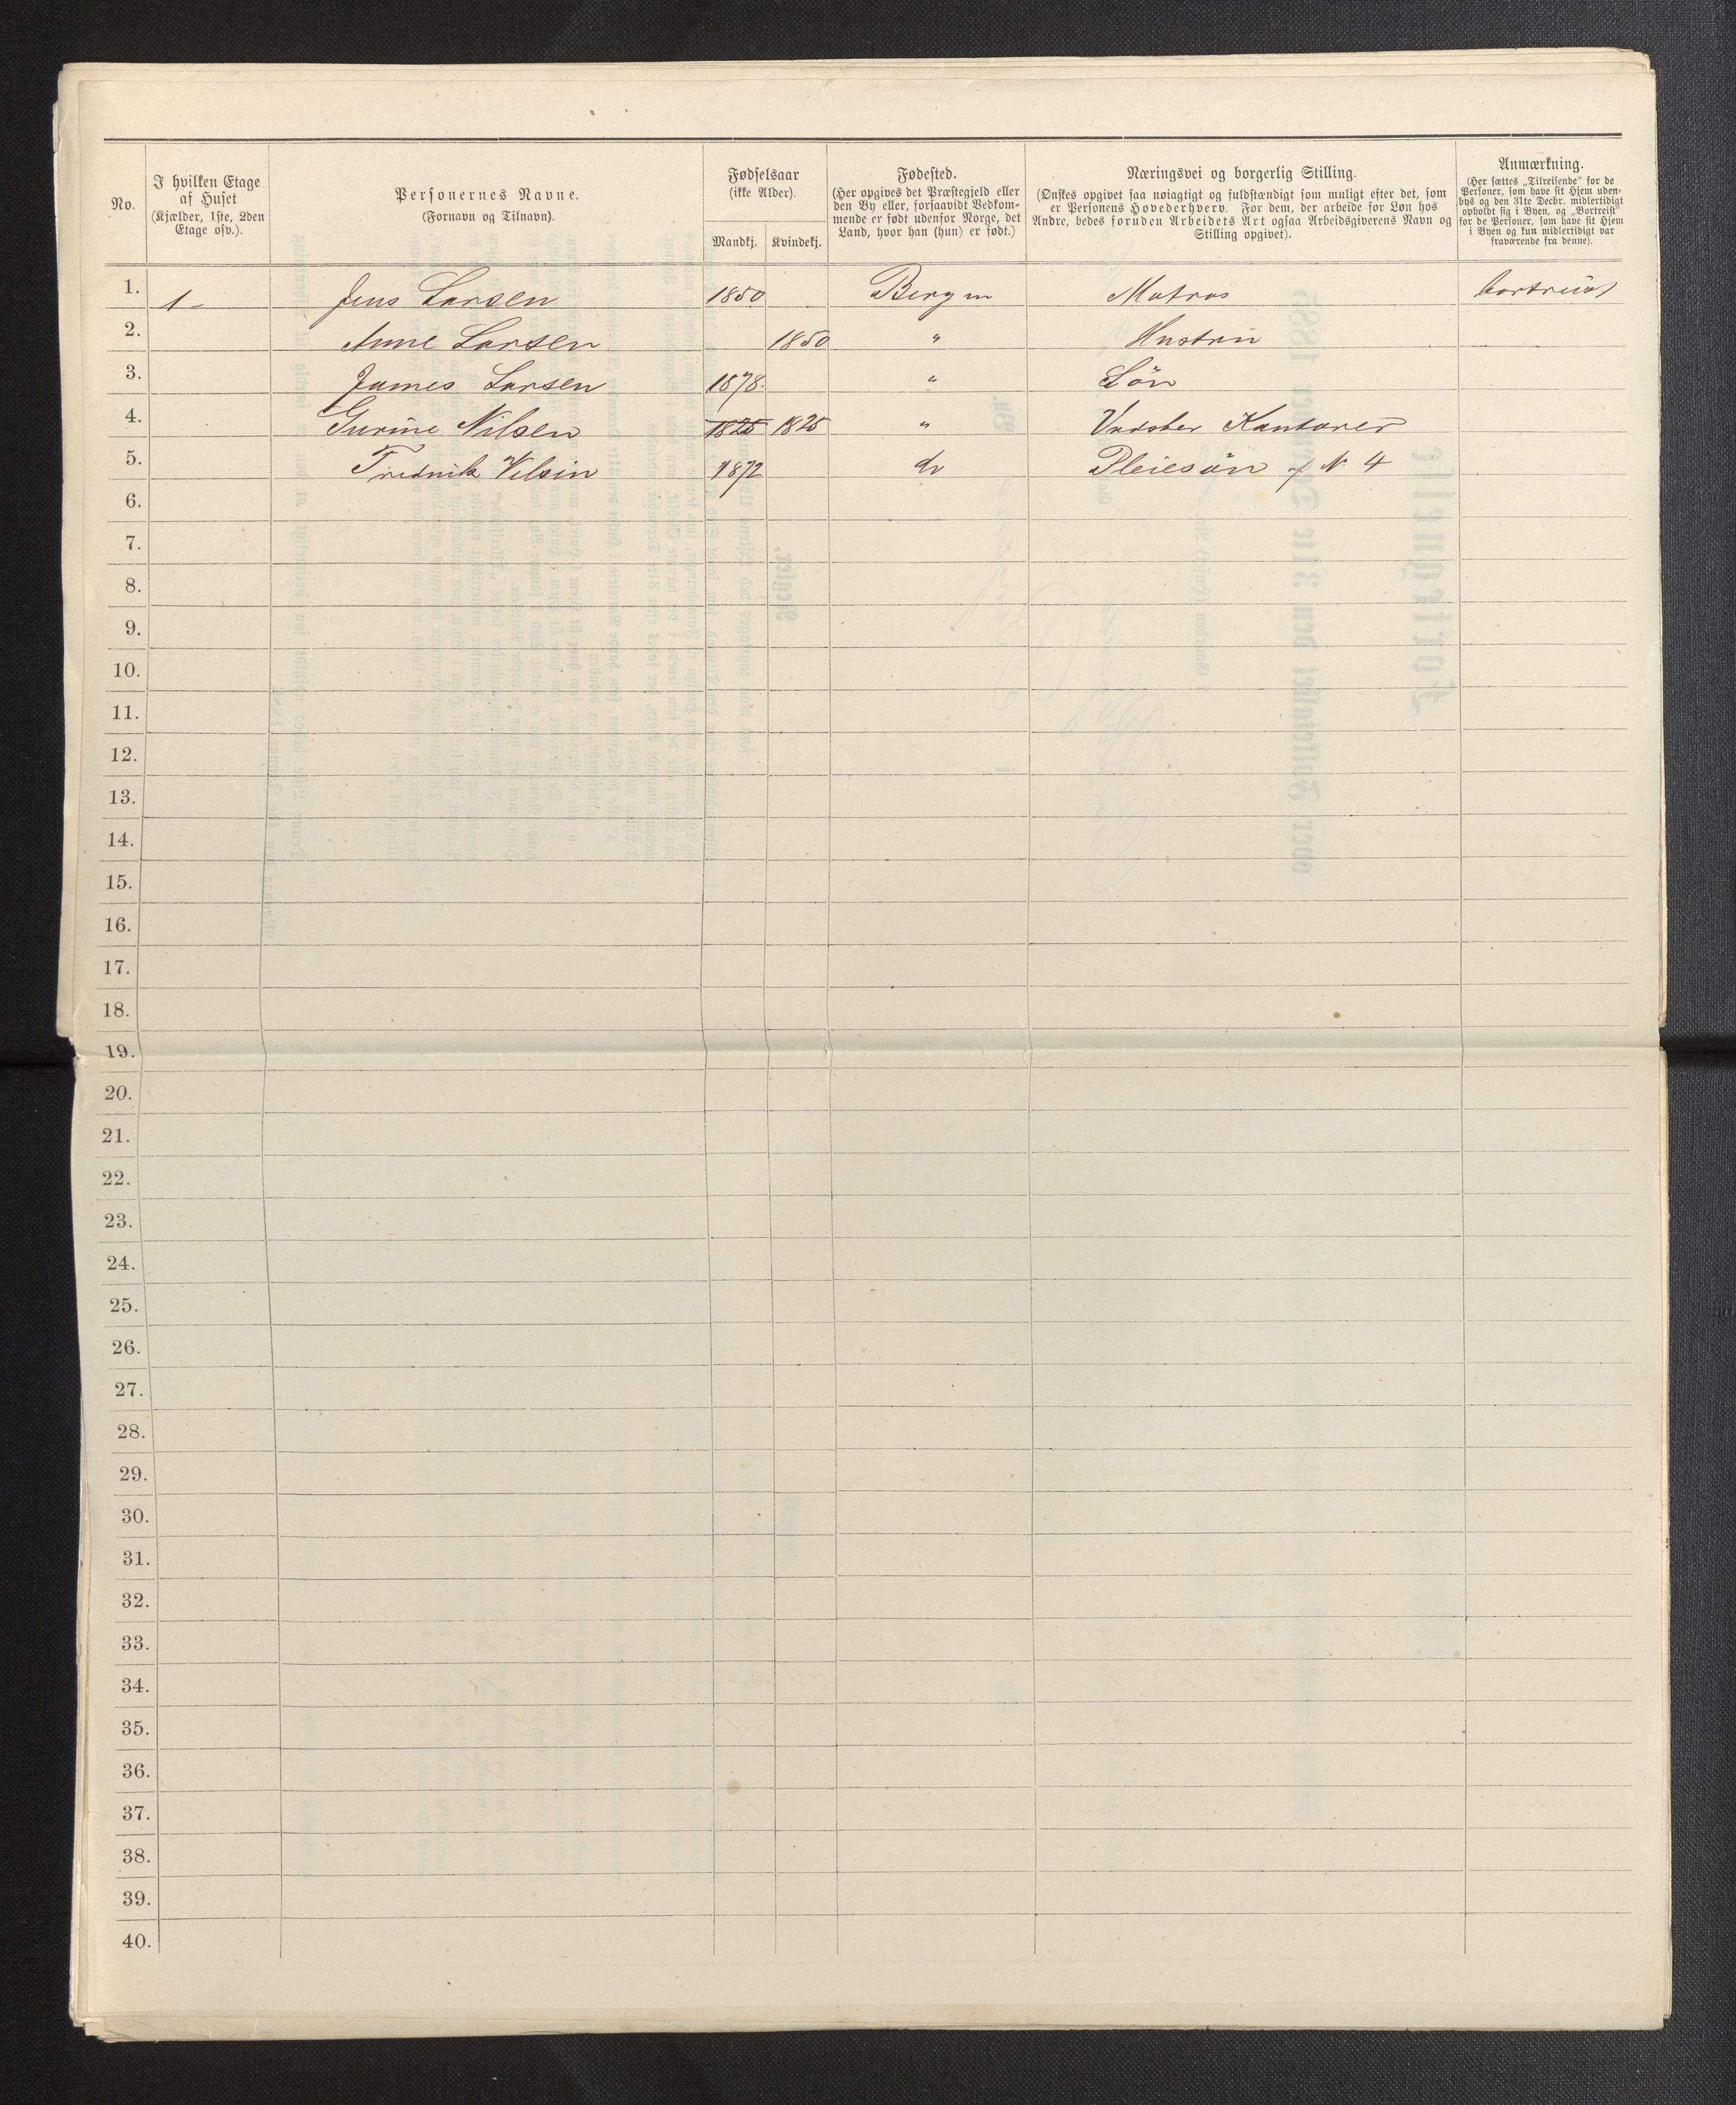 No.
I hvilken Etage
af Huset
(Kjælder, 1ste, 2den
Etage osv.).
Personernes Navne.
(Fornavn og Tilnavn).
Fødselsaar
(ikke Alder).
Mandkj. Kvindekj.
Fødested.
(Her opgives det Præstegjeld eller
den By eller, forsaavidt Vedkom-
mende er født udenfor Norge, det
Land, hvor han (hun) er født.)
Næringsvei og borgerlig Stilling.
(Ønskes opgivet saa nøiagtigt og fuldstændigt som muligt efter det, som
er Personens Hovederhverv. For dem, der arbeide for Løn hos
Andre, bedes foruden Arbeidets Art ogsaa Arbeidsgiverens Navn og
Stilling opgivet).
Anmærkning.
(Her sættes „Tilreisende“ for de
Personer, som have sit Hjem uden-
bys og den 31te Decbr. midlertidigt
opholdt sig i Byen, og „Bortreist“
for de Personer, som have sit Hjem
i Byen og kun midlertidigt var
fraværende fra denne).
1. 1 Jens Larsen 1850 Bergen Matros bortreist
2. Anne Larsen 1850 " Hustru
3. James Larsen 1878. " Søn
4. Gurine Nilsen 1825 1825 " Vadsker Kontorer
5. Fredrik Nilsen 1872 do Pleiesøn af N 4
6.
7.
8.
9.
10.
11.
12.
13.
14.
15.
16.
17.
18.
19.
20.
21.
22.
23.
24.
25.
26.
27.
28.
29.
30.
31.
32.
33.
34.
35.
36.
37.
38.
39.
40.